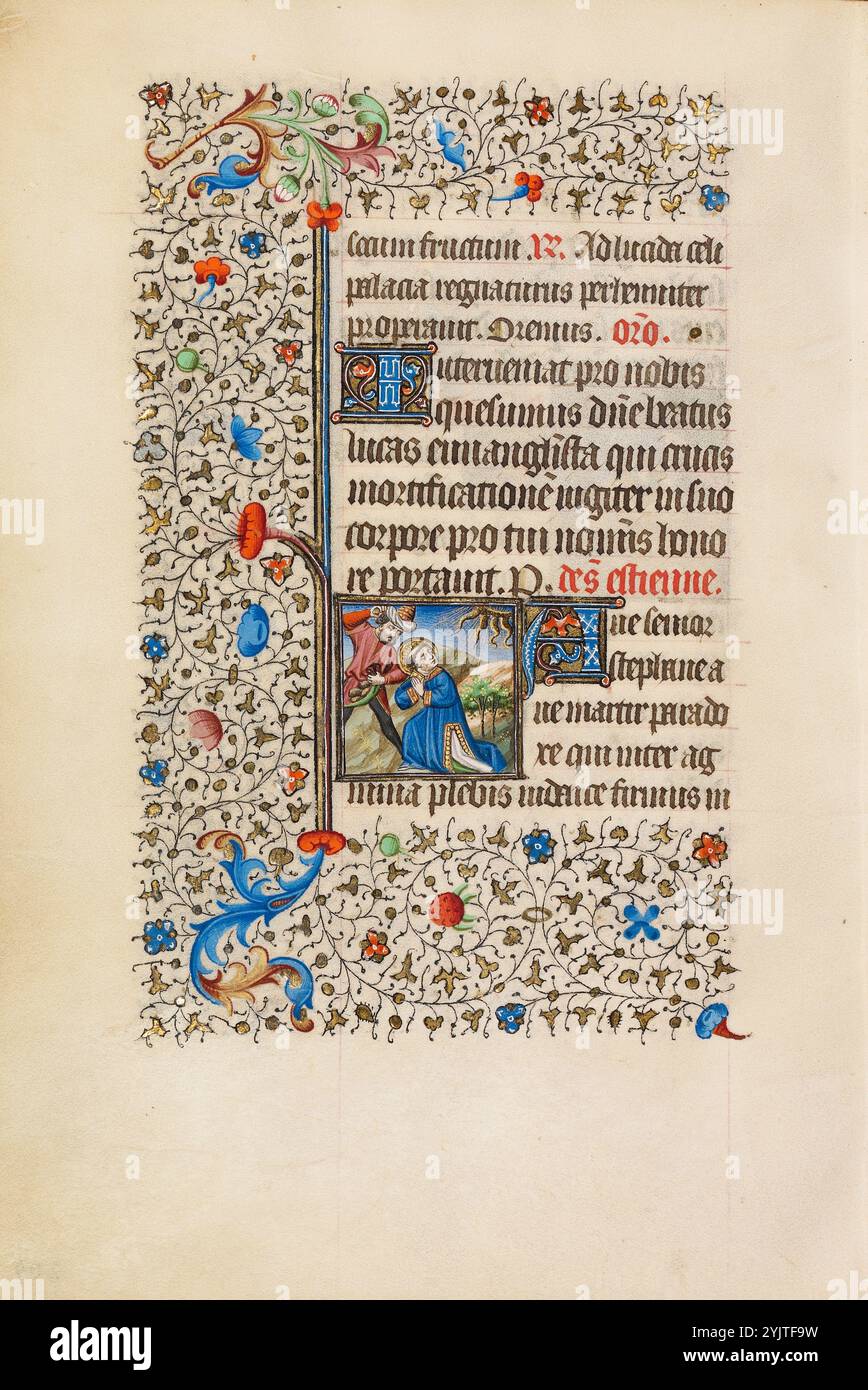 sacum fructum .R. Ad lucida celi
palacia regnaturus perhenniter
properauit. Oremus. orõ.
Interueniat pro nobis
quesumus dñe beatus
lucas euuangl̃ista qui crucis
mortificationẽ iugiter in suo
corpore pro tui nomĩs hono
re portauit. P. des̃ estienne.
Aue senior
stephane a
ue martir parado
xe qui inter ag
mina plebis iudaice firmus in
alamy
Image ID: 2YJTF9W
www.alamy.com